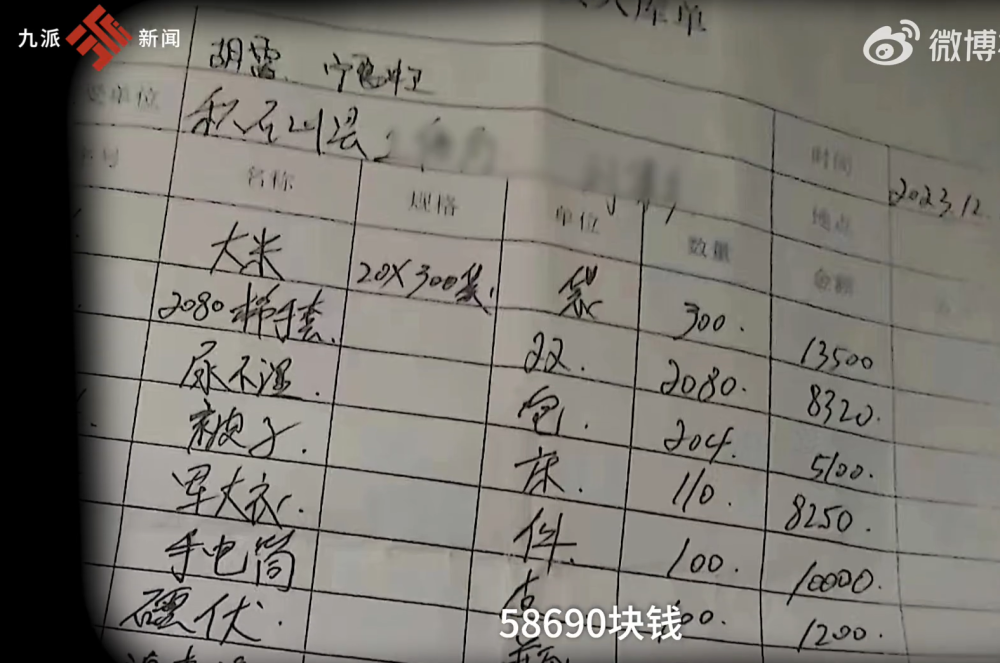 九派 新闻
微博
库单
胡雷 宁
单位 积石山县 时间 2023.12
号 名称 规格 单位 数量 地点
金额
大米 20X300袋 袋 300. 13500
2080棉手套 双 2080. 8320.
尿不湿. 包. 204. 5100.
被子. 床. 110. 8250.
军大衣. 件. 100. 10000.
手电筒 1200.
58690块钱